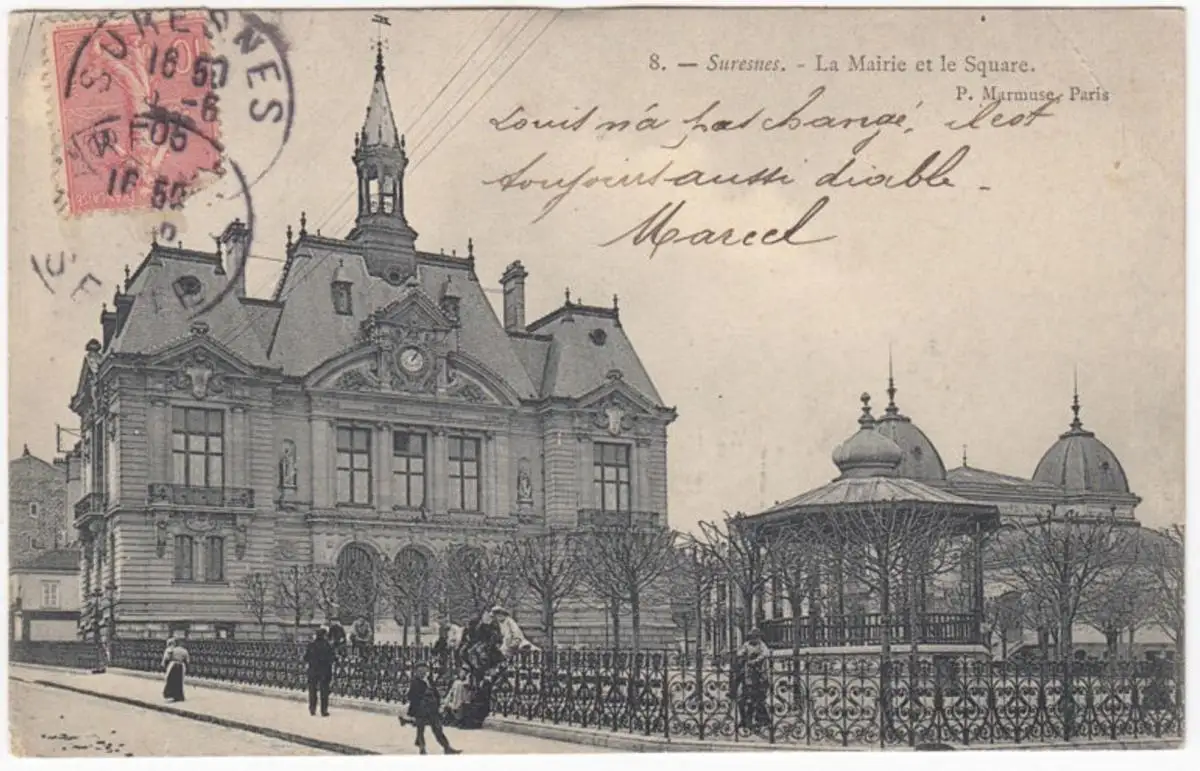 SURESNES
10
16 50
-6
05
16 50
8. — Suresnes. - La Mairie et le Square.
P. Marmuse, Paris
Louis n'a pas changé, il est
toujours aussi diable -
Marcel